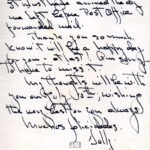 it must have arrived the day
we left before Post Office
forwarded mail.
Thank you so much.
I know it will be a happy day
for you - at last! I'm sorry
to have to miss it.
My thoughts will be with
you on July 1st wishing
the very best for you always
Muchos